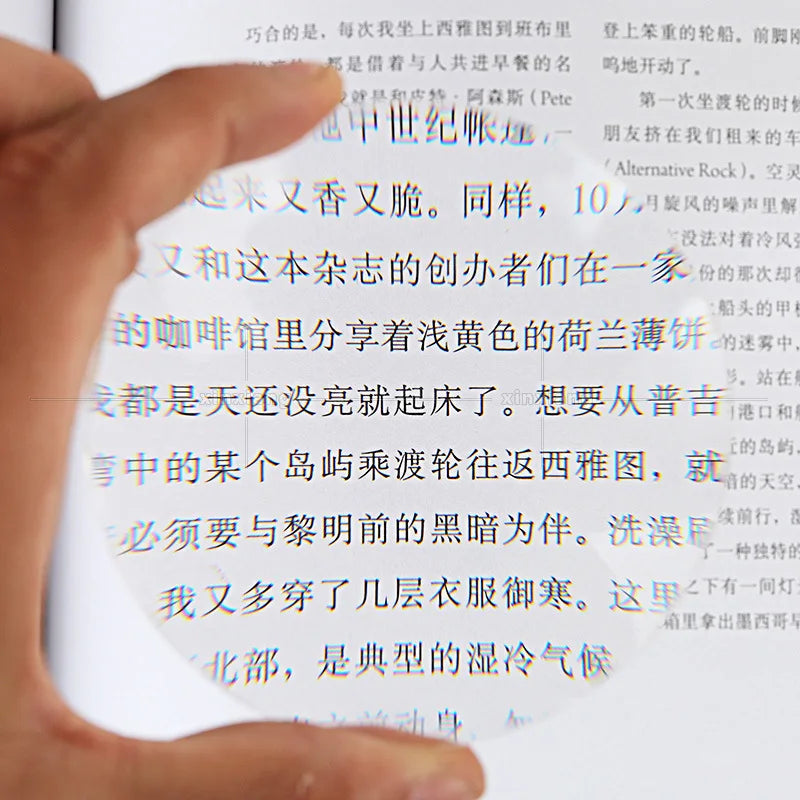 巧合的是，每次我坐上西雅图到班布里
都是借着与人共进早餐的名
就是和皮特·阿森斯（Pete
中世纪帐篷
起来又香又脆。同样，10月
又和这本杂志的创办者们在一家
的咖啡馆里分享着浅黄色的荷兰薄饼。
我都是天还没亮就起床了。想要从普吉
湾中的某个岛屿乘渡轮往返西雅图，就
必须要与黎明前的黑暗为伴。洗澡刷
我又多穿了几层衣服御寒。这里
北部，是典型的湿冷气候
前动身
登上笨重的轮船。前脚刚
呜地开动了。
第一次坐渡轮的时候
朋友挤在我们租来的车
（Alternative Rock）。空灵
月旋风的噪声里解
没法对着冷风
份的那次却
船头的甲
的迷雾中，
站在
港口和
的岛屿
暗的天空
续前行，
了一种独特的
之下有一间灯
箱里拿出墨西哥
xinxiang
xinxiang